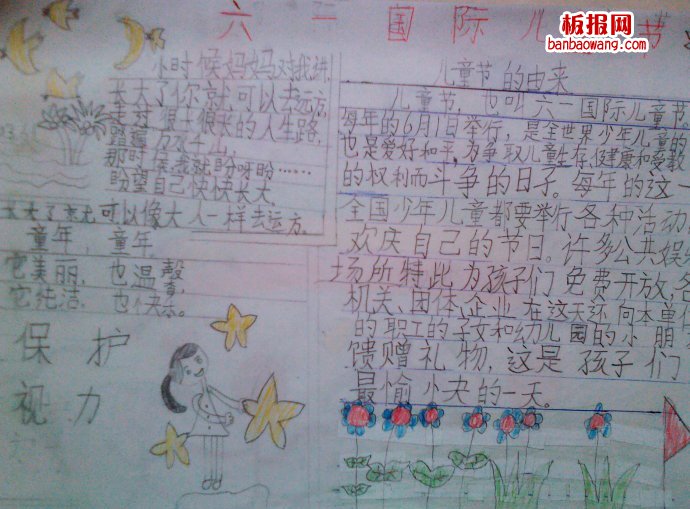 六一国际儿童节
板报网
banbaowang.com
小时候妈妈对我讲,
长大了你就可以去远方,
走过很长很长的人生路,
踏遍万水千山,
那时候我就盼呀盼……
盼望自己快快长大,
长大了就可以像大人一样去远方。
童年,童年,
它美丽,也温馨,
它纯洁,也快乐。
保护
视力
儿童节的由来
儿童节,也叫六一国际儿童节
每年的6月1日举行,是全世界少年儿童的
也是爱好和平,为争取儿童生存,健康和受教
的权利而斗争的日子。每年的这一
全国少年儿童都要举行各种活动
欢庆自己的节日。许多公共娱
场所特此为孩子们免费开放,各
机关、团体、企业在这天还向本单
的职工的子女和幼儿园的小朋
馈赠礼物,这是孩子们
最愉快的一天。